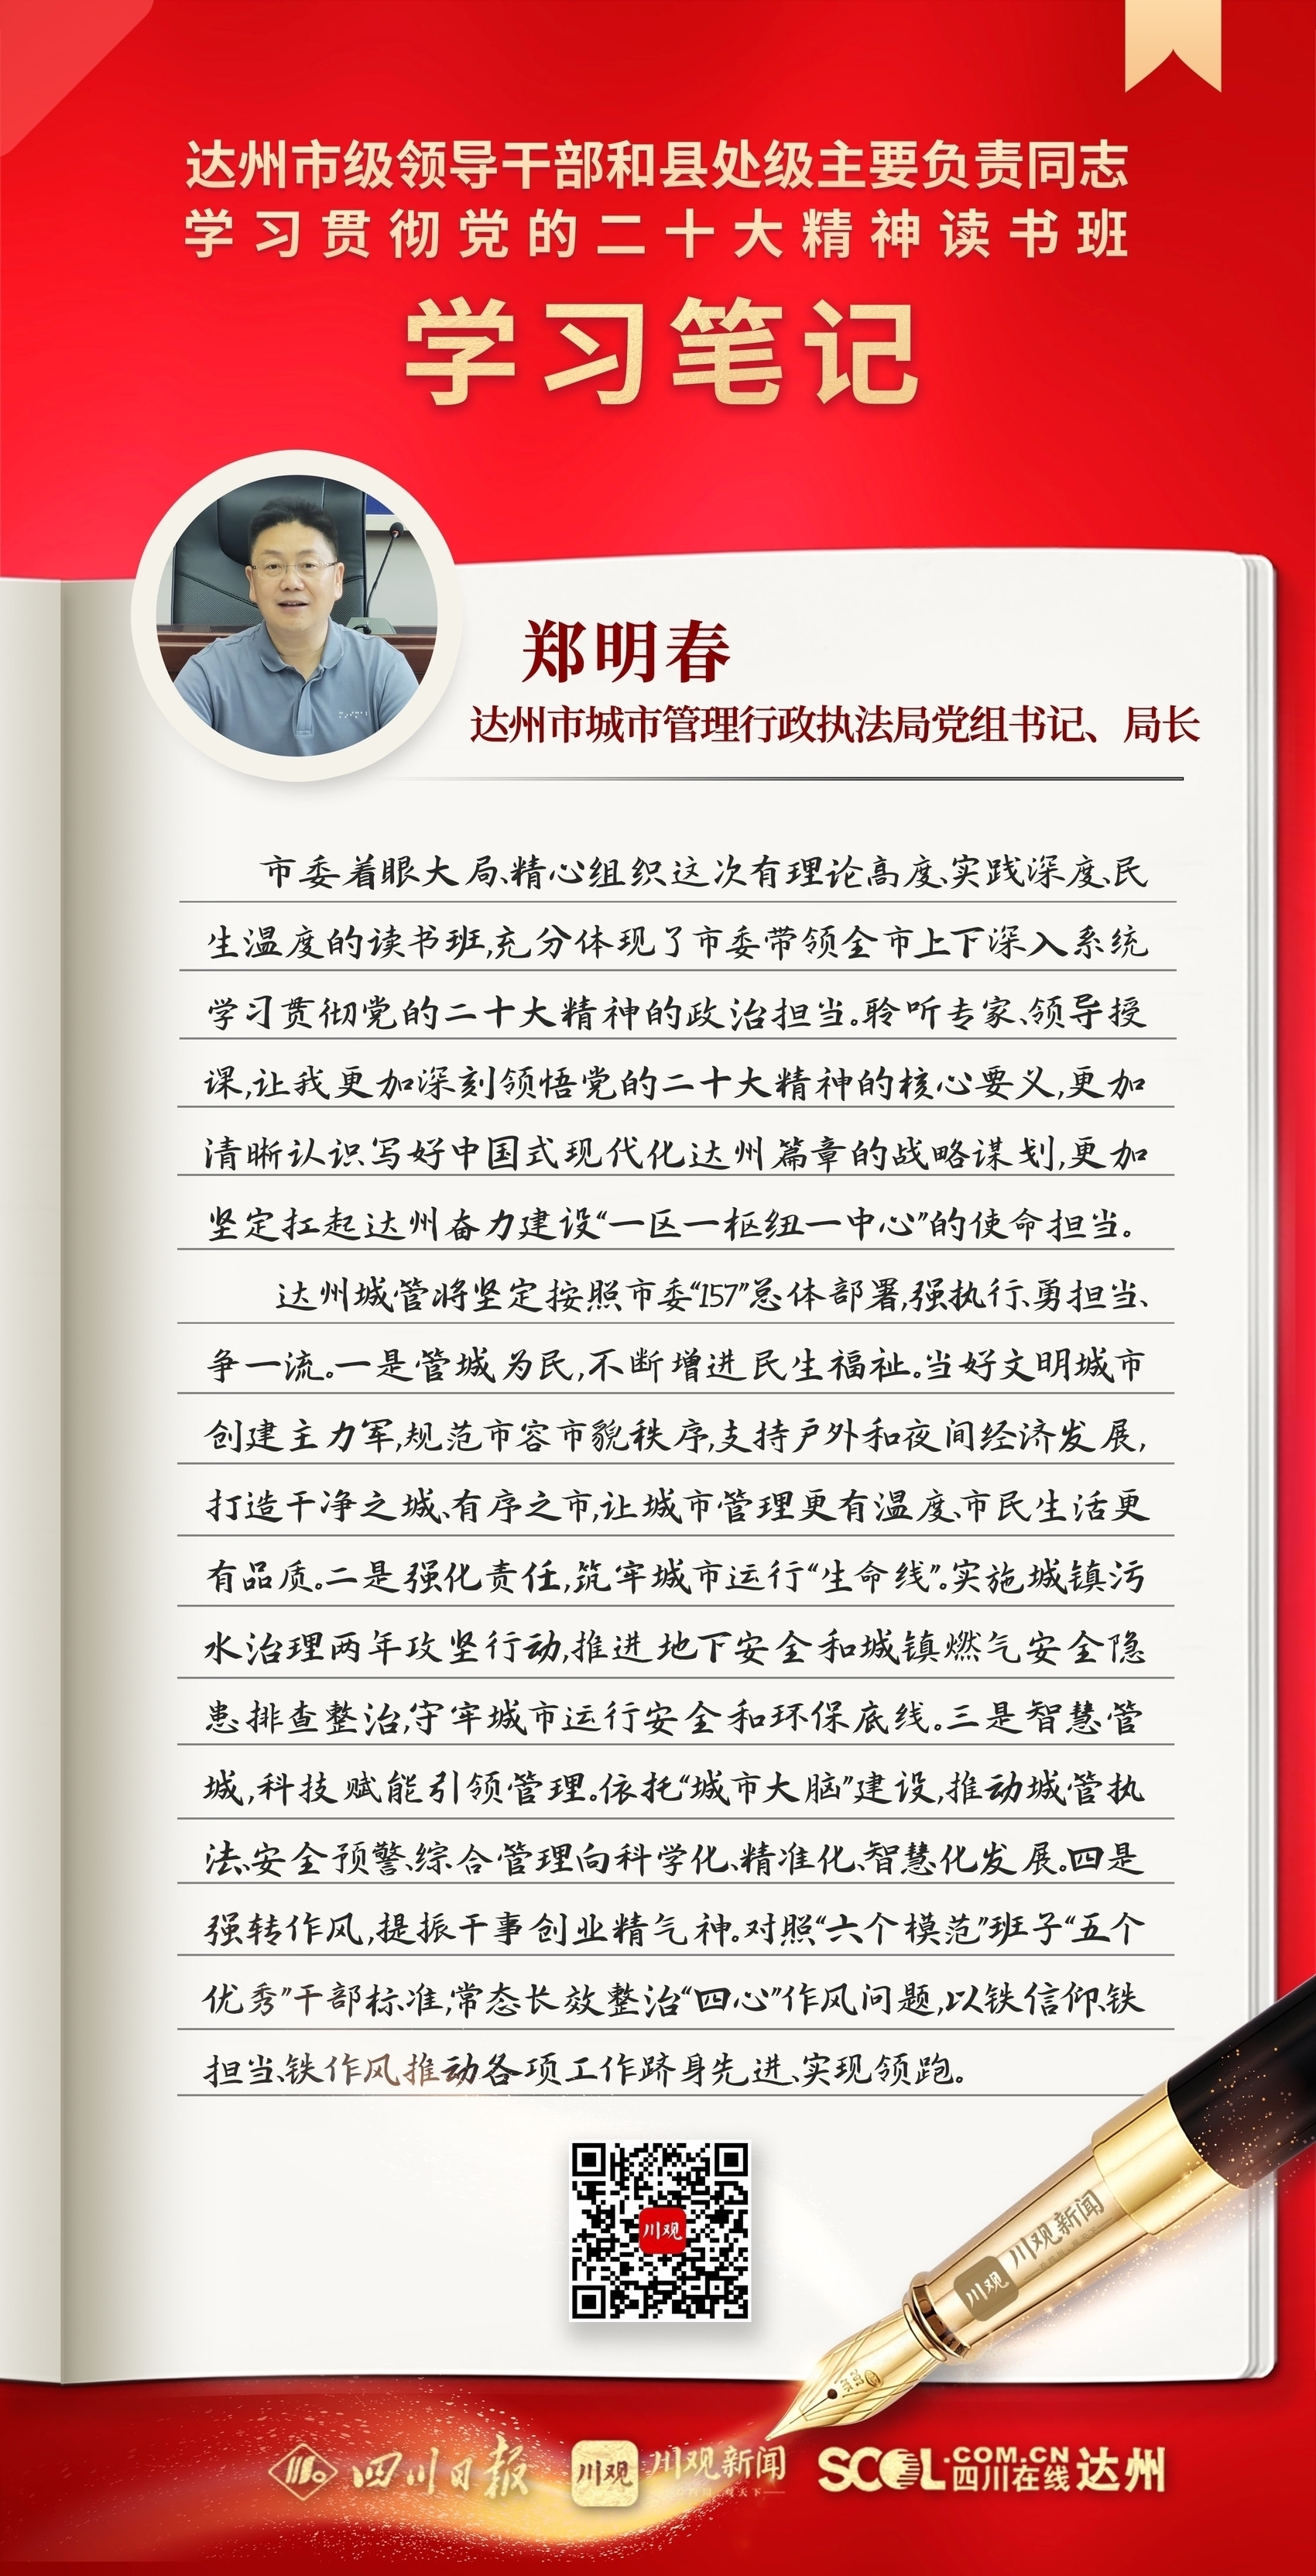 达州市级领导干部和县处级主要负责同志
学习贯彻党的二十大精神读书班
学习笔记
郑明春
达州市城市管理行政执法局党组书记、局长
市委着眼大局、精心组织这次有理论高度、实践深度、民
生温度的读书班,充分体现了市委带领全市上下深入系统
学习贯彻党的二十大精神的政治担当。聆听专家、领导授
课,让我更加深刻领悟党的二十大精神的核心要义,更加
清晰认识写好中国式现代化达州篇章的战略谋划,更加
坚定扛起达州奋力建设“一区一枢纽一中心”的使命担当。
达州城管将坚定按照市委“157”总体部署,强执行、勇担当、
争一流。一是管城为民,不断增进民生福祉。当好文明城市
创建主力军,规范市容市貌秩序,支持户外和夜间经济发展,
打造干净之城、有序之市,让城市管理更有温度、市民生活更
有品质。二是强化责任,筑牢城市运行“生命线”。实施城镇污
水治理两年攻坚行动,推进地下安全和城镇燃气安全隐
患排查整治,守牢城市运行安全和环保底线。三是智慧管
城,科技赋能引领管理。依托“城市大脑”建设,推动城管执
法、安全预警、综合管理向科学化、精准化、智慧化发展。四是
强转作风,提振干事创业精气神。对照“六个模范”班子“五个
优秀”干部标准,常态长效整治“四心”作风问题,以铁信仰、铁
担当、铁作风推动各项工作跻身先进、实现领跑。
川观
川观 川观新闻
四川日报 川观 川观新闻 SCOL.COM.CN 四川在线 达州